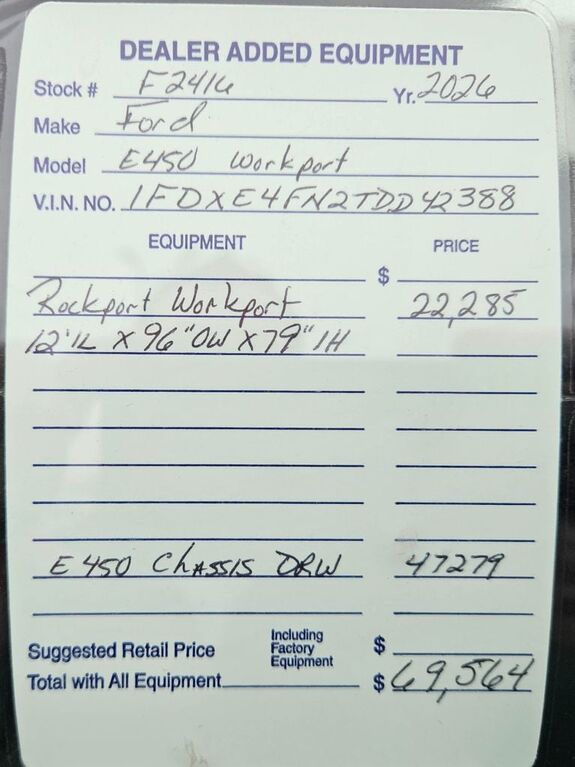 DEALER ADDED EQUIPMENT
Stock # F2416 Yr. 2026
Make Ford
Model E450 Workport
V.I.N. NO. 1FDXE4FN2TDD42388
EQUIPMENT PRICE
$
Rockport Workport 22,285
12'IL X 96"OW X 79"IH
E450 CHASSIS DRW 47279
Suggested Retail Price Including Factory Equipment $
Total with All Equipment $ 69,564